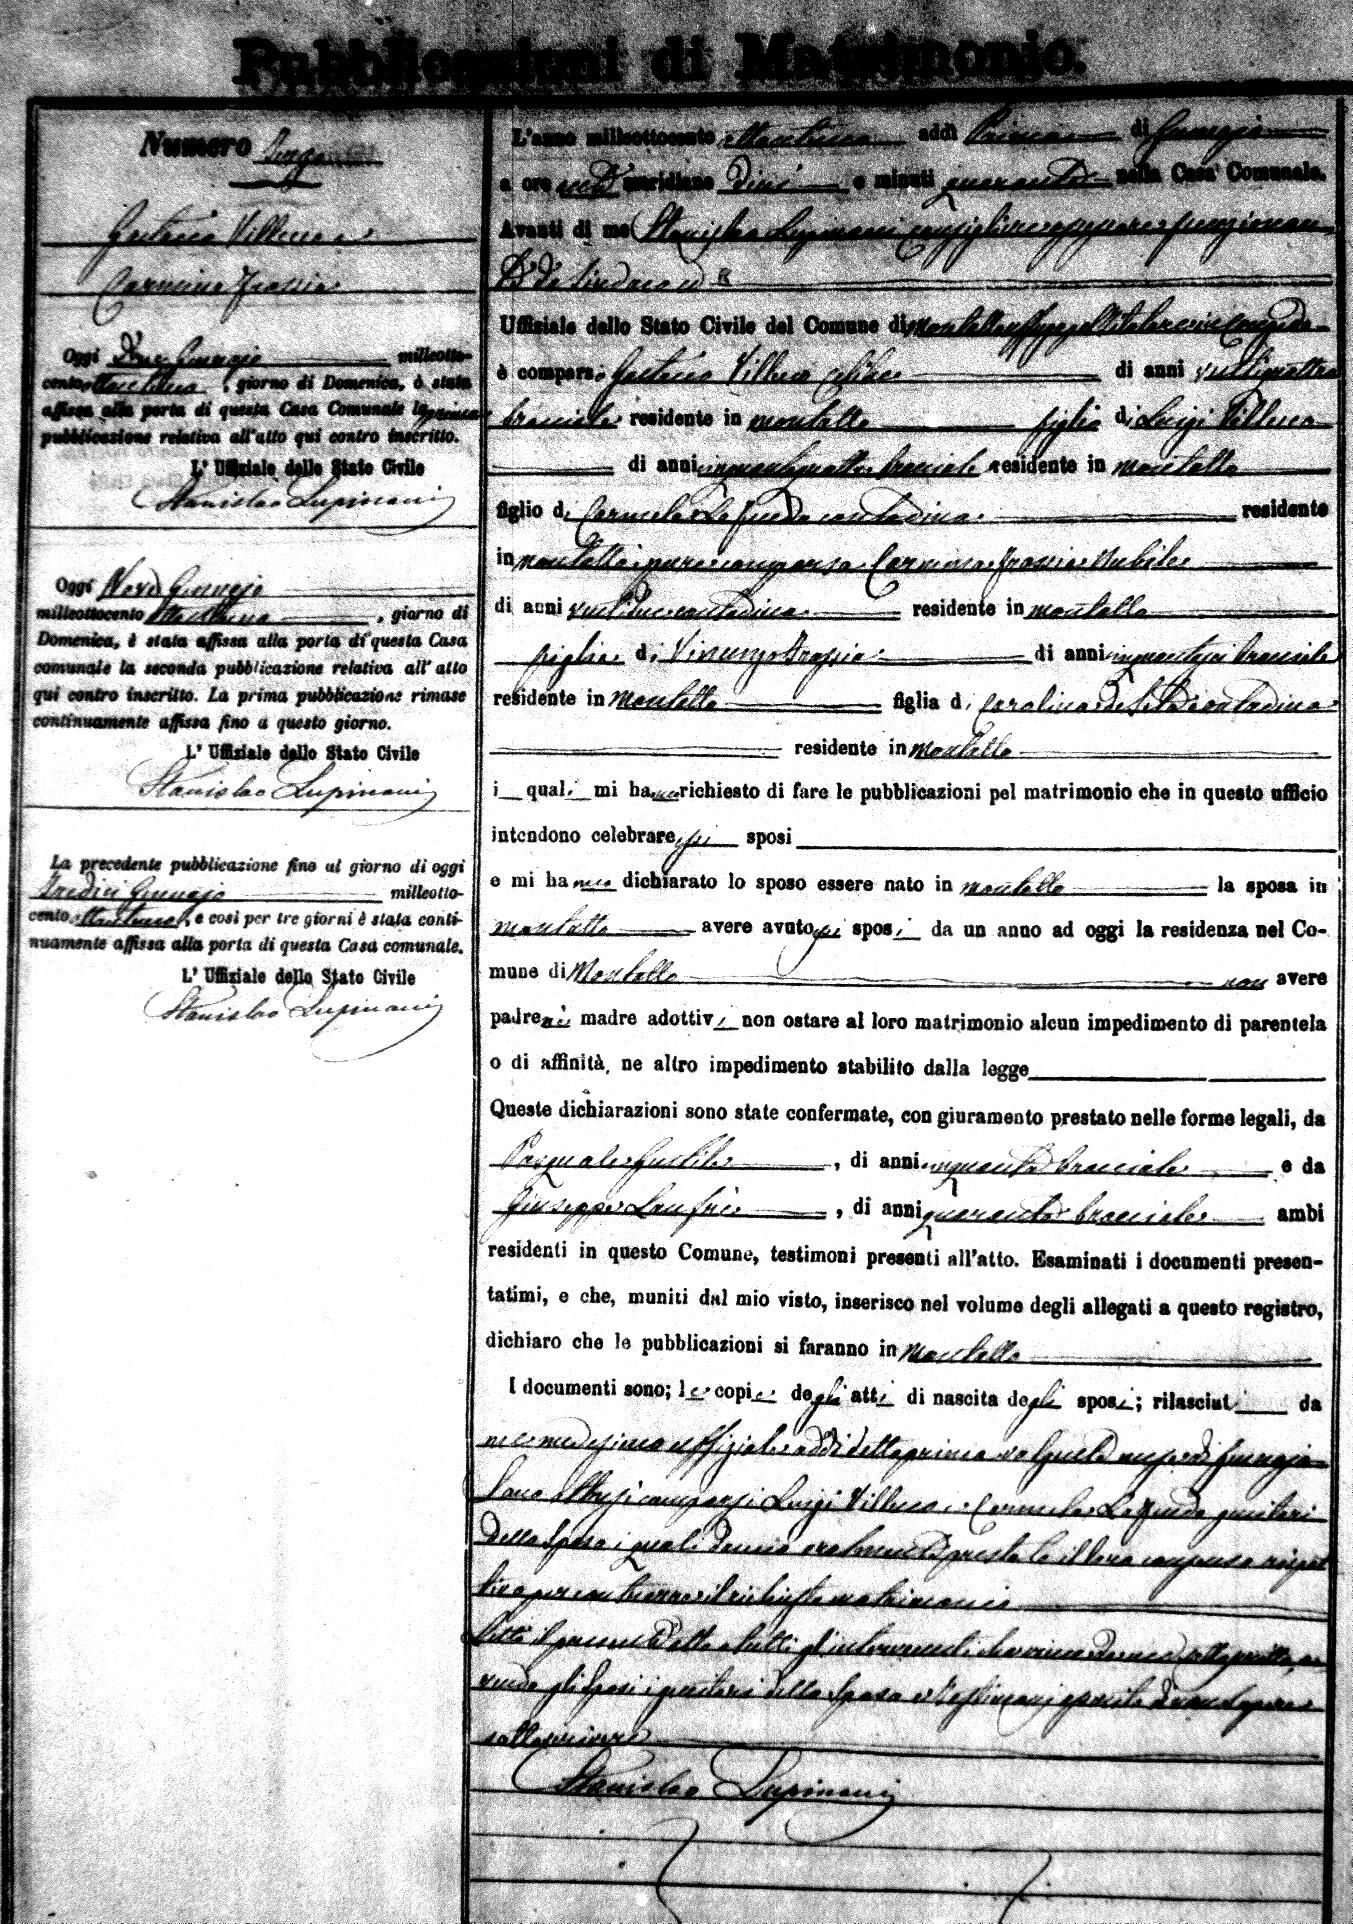 Pubblicazioni di Matrimonio.
Numero
Gaetano Villecco e
Carmina Frassia
Oggi Due Gennajo milleotto-
cento ottantuno, giorno di Domenica, è stata
affissa alla porta di questa Casa Comunale la prima
pubblicazione relativa all'atto qui contro inscritto.
L'Uffiziale dello Stato Civile
Stanislao Lupinacci
Oggi Nove Gennajo
milleottocento ottantuno, giorno di
Domenica, è stata affissa alla porta di questa Casa
comunale la seconda pubblicazione relativa all'atto
qui contro inscritto. La prima pubblicazione rimase
continuamente affissa fino a questo giorno.
L'Uffiziale dello Stato Civile
Stanislao Lupinacci
La precedente pubblicazione fino al giorno di oggi
Gennajo milleotto-
cento ottantuno, e così per tre giorni è stata conti-
nuamente affissa alla porta di questa Casa comunale.
L'Uffiziale dello Stato Civile
Stanislao Lupinacci
L'anno milleottocento ottantuno addì Primo di Gennajo
a ore meridiane dieci e minuti quaranta nella Casa Comunale.
Avanti di me Stanislao Lupinacci consigliere funzionan
te da Sindaco ed
Uffiziale dello Stato Civile del Comune di Montalto Uffugo
è comparso Gaetano Villecco celibe di anni ventiquattro
bracciale residente in Montalto figlio di Luigi Villecco
di anni cinquantaquattro bracciale residente in Montalto
figlio di Carmela contadina residente
in Montalto; pure comparsa Carmina Frassia nubile
di anni contadina residente in Montalto
figlia di Vincenzo Frassia di anni bracciale
residente in Montalto figlia di Carolina contadina
residente in Montalto
i quali mi hanno richiesto di fare le pubblicazioni pel matrimonio che in questo ufficio
intendono celebrare essi sposi
e mi hanno dichiarato lo sposo essere nato in Montalto la sposa in
Montalto avere avuto essi sposi da un anno ad oggi la residenza nel Co-
mune di Montalto non avere
padre nè madre adottivi non ostare al loro matrimonio alcun impedimento di parentela
o di affinità, ne altro impedimento stabilito dalla legge
Queste dichiarazioni sono state confermate, con giuramento prestato nelle forme legali, da
Pasquale Gentile, di anni cinquanta bracciale e da
Giuseppe, di anni quaranta bracciale ambi
residenti in questo Comune, testimoni presenti all'atto. Esaminati i documenti presen-
tatimi, e che, muniti dal mio visto, inserisco nel volume degli allegati a questo registro,
dichiaro che le pubblicazioni si faranno in Montalto
I documenti sono; le copie degli atti di nascita degli sposi; rilasciati da
me medesimo uffiziale addì Gennajo
Sono comparsi Luigi Villecco e Carmela genitori
dello sposo i quali il loro consenso rispet
tivo per contrarre il richiesto matrimonio
Letto il presente atto a tutti gl'intervenuti
gli sposi i genitori dello sposo e testimoni
sottoscrivere
Stanislao Lupinacci